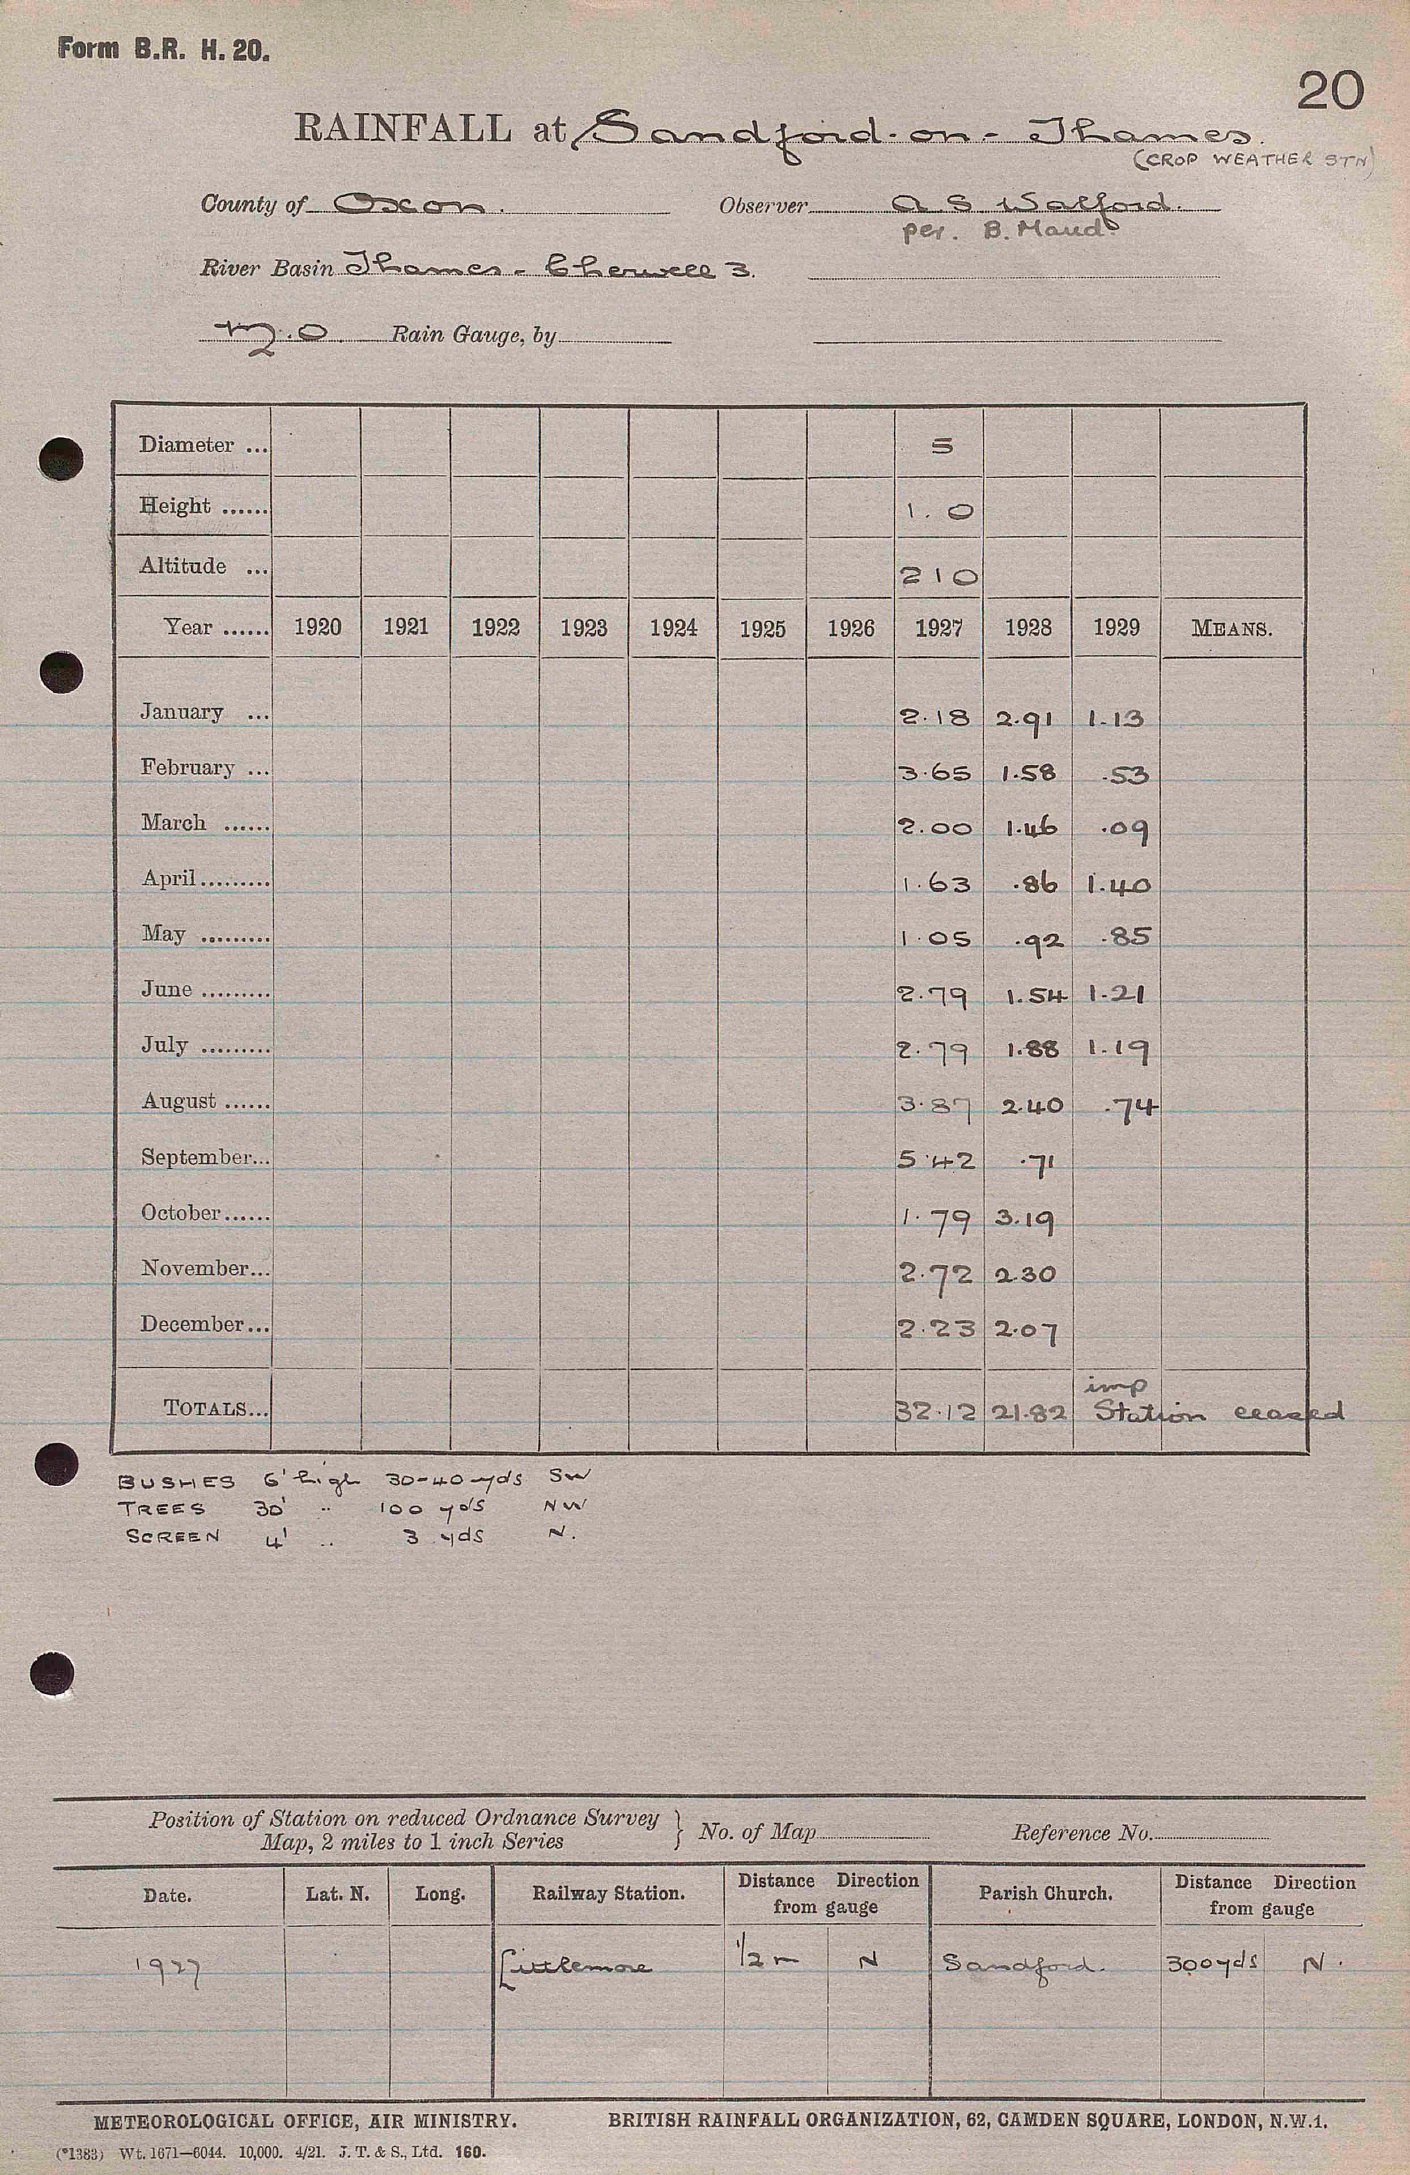 Form B.R. H. 20.
20
RAINFALL at Sandford-on-Thames.
(CROP WEATHER STN)
County of Oxon. Observer A S Walford.
per. B. Maud.
River Basin Thames - Cherwell 3.
M.O. Rain Gauge, by
Diameter ... 5
Height ...... 1.0
Altitude ... 210
Year ...... 1920 1921 1922 1923 1924 1925 1926 1927 1928 1929 MEANS.
January ... 2.18 2.91 1.13
February ... 3.65 1.58 .53
March ...... 2.00 1.46 .09
April ......... 1.63 .86 1.40
May ......... 1.05 .92 .85
June ......... 2.79 1.54 1.21
July ......... 2.79 1.88 1.19
August ...... 3.87 2.40 .74
September... 5.42 .71
October...... 1.79 3.19
November... 2.72 2.30
December... 2.23 2.07
imp
TOTALS... 32.12 21.82 Station ceased
BUSHES 6' high 30-40 yds SW
TREES 30' " 100 yds NW
SCREEN 4' " 3 yds N.
Position of Station on reduced Ordnance Survey
Map, 2 miles to 1 inch Series } No. of Map Reference No.
Date. Lat. N. Long. Railway Station. Distance Direction from gauge Parish Church. Distance Direction from gauge
1927 Littlemore 1/2 m N Sandford. 300 yds N.
METEOROLOGICAL OFFICE, AIR MINISTRY. BRITISH RAINFALL ORGANIZATION, 62, CAMDEN SQUARE, LONDON, N.W.1.
(*1383) Wt. 1671—6044. 10,000. 4/21. J. T. & S., Ltd. 160.